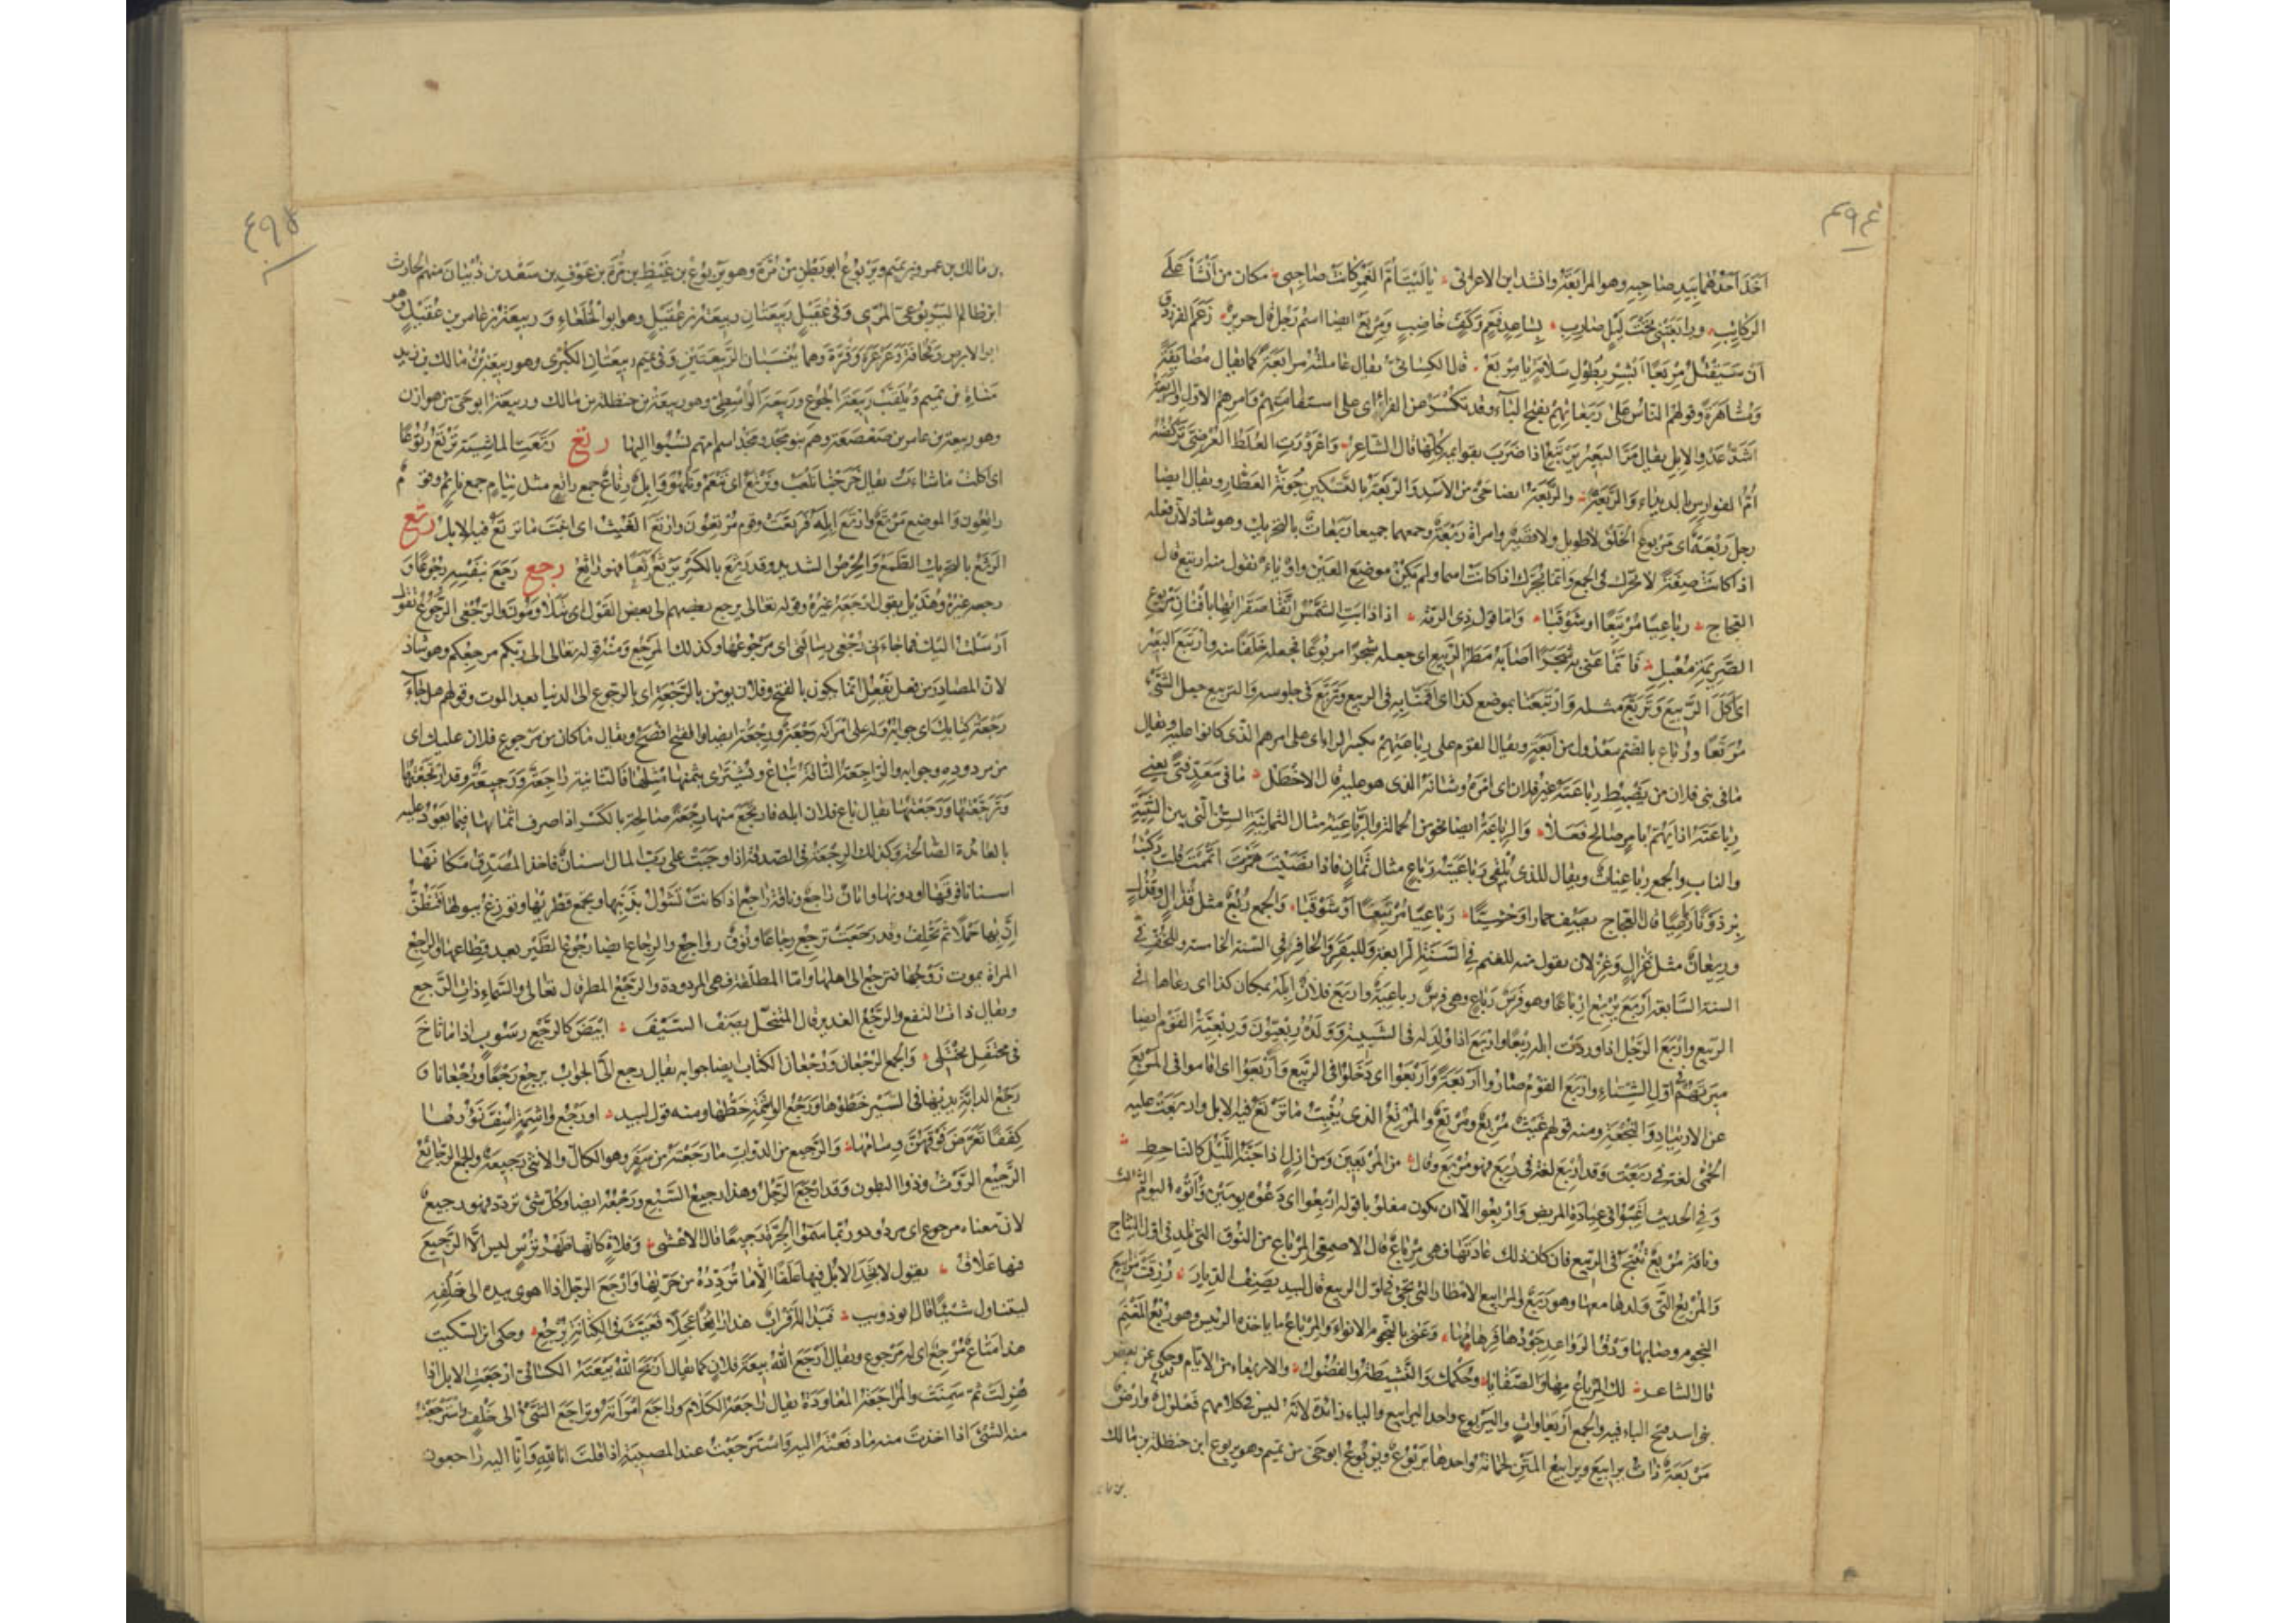 ٤٩٤
اخذ احدهما بيد صاحبه وهو المرابعة وانشد ابن الاعرابي يا ليت ام الغمر كانت صاحبي مكان من انشأ على
الركايب ورابعتني تحت ليل ضارب بساعد فعم وكف خاضب ومربع ايضا اسم رجل قال جرير زعم الفرزدق
ان سيقتل مربعا ابشر بطول سلامة يا مربع قال الكسائي يقال عاملته مرابعة كما يقال مصايفة
ومشاهرة وقولهم الناس على ربعاتهم بفتح الباء وقد تكسر عن الفراء اي على استقامتهم وامرهم الاول والربعة
اشد عدو الابل يقال مر البعير يرتبع اذا ضرب بقوايمه كلها قال الشاعر واعرورت العلط العرضي تركضه
ام الفوارس بالديداء والربعة والربعة ايضا حي من الاسد والربعة بالتسكين جونة العطار ويقال ايضا
رجل ربعة اي مربوع الخلق لا طويل ولا قصير وامراة ربعة وجمعهما جميعا ربعات بالتحريك وهو شاذ لان فعلة
اذا كانت صفة لا تحرك في الجمع وانما تحرك اذا كانت اسما ولم يكن موضع العين واو او ياء تقول منه ارتبع قال
العجاج رباعيا مرتبعا او شوقبا واما قول ذي الرمة اذا ذابت الشمس اتقا صقراتها بافنان مربوع
الصريمة معبل فانما عنى به شجرا اصابه مطر الربيع اي جعله شجرا مربوعا فجعله خلفا منه وارتبع البعير
اي اكل الربيع وتربع مثله وارتبعنا بموضع كذا اي اقمنا به في الربيع وتربع في جلوسه والتربيع جعل الشيء
مربعا ورباع بالضم معدول من اربعة ويقال القوم على رباعتهم بكسر الراء اي على امرهم الذي كانوا عليه ويقال
ما في بني فلان من يضبط رباعته غير فلان اي امره وشانه الذي هو عليه قال الاخطل ما في معد فتى يغني
رباعته اذا يهم بامر صالح فعلا والرباعة ايضا نحو من الحمالة والرباعية مثال الثمانية السن التي بين الثنية
والناب والجمع رباعيات ويقال للذي يلقي رباعيته رباع مثال ثمان فاذا نصبت اتممت قلت ركبت
برذونا رباعيا قال العجاج يصف حمارا وحشيا رباعيا مرتبعا او شوقبا والجمع ربع مثل قذال وقذل
وربعان مثل غزال وغزلان تقول منه للغنم في السنة الرابعة وللبقر والحافر في السنة الخامسة وللخف في
السنة السابعة اربع يربع ارباعا وهو فرس رباع وهي فرس رباعية واربع فلان ابله بمكان كذا اي رعاها في
الربيع واربع الرجل اذا وردت ابله ربعا واربع اذا ولد له في الشبيبة وولده ربعيون وربعية القوم ايضا
ميرتهم في اول الشتاء واربع القوم صاروا اربعة واربعوا اي دخلوا في الربيع واربعوا اي اقاموا في المربع
عن الارتياد والنجعة ومنه قولهم غيث مربع ومرتع والمرتع الذي ينبت ما ترتع فيه الابل واربعت عليه
الحمى لغة في ربعت وقد اربع لغة في ربع فهو مربع وقال من المربعين ومن ازل اذا جنه الليل كالناحط
وفي الحديث اغبوا في عيادة المريض واربعوا الا ان يكون مغلوبا قوله اربعوا اي دعوه يومين واتوه اليوم الثالث
وناقة مربع تنتج في الربيع فان كان ذلك عادتها فهي مرباع قال الاصمعي المرباع من النوق التي تلد في اول النتاج
والمربع التي ولدها معها وهو ربع والمرابيع الامطار التي تجيء في اول الربيع قال لبيد يصف الديار رزقت مرابيع
النجوم وصابها ودق الرواعد جودها فرهامها وعنى بالنجوم الانواء والمرباع ما ياخذه الرئيس وهو ربع المغنم
قال الشاعر لك المرباع منها والصفايا وحكمك والنشيطة والفضول والاربعاء من الايام وحكي عن بعض
بني اسد فتح الباء فيه والجمع اربعاوات واليربوع واحد اليرابيع والياء زائدة لانه ليس في كلامهم فعلول وارض
مربعة ذات يرابيع ويرابيع المتن لحماته واحدها يربوع ويربوع ابو حي من تميم وهو يربوع ابن حنظلة بن مالك
٤٩٥
بن مالك بن عمرو بن تميم ويربوع ابو بطن من مرة وهو يربوع بن غيظ بن مرة بن عوف بن سعد بن ذبيان منهم الحارث
ابن ظالم اليربوعي المري وفي عقيل ربيعتان ربيعة بن عقيل وهو ابو الخلعاء وربيعة بن عامر بن عقيل وهو
ابو الابرص وقحافة وعرعرة وقرة وهما ينسبان الربيعتين وفي تميم ربيعتان الكبرى وهو ربيعة بن مالك بن زيد
مناة بن تميم ويلقب ربيعة الجوع وربيعة الوسطى وهو ربيعة بن حنظلة بن مالك وربيعة ابو حي من هوازن
وهو ربيعة بن عامر بن صعصعة وهم بنو مجد ومجد اسم امهم نسبوا اليها رتع رتعت الماشية ترتع رتوعا
اي اكلت ما شاءت يقال خرجنا نلعب ونرتع اي ننعم ونلهو وابل رتاع جمع راتع مثل نيام جمع نائم وقوم
راتعون والموضع مرتع وارتع ابله فرتعت وقوم مرتعون وارتع الغيث اي انبت ما ترتع فيه الابل رثع
الرثع بالتحريك الطمع والحرص الشديد وقد رثع بالكسر يرثع رثعا فهو راثع رجع رجع بنفسه رجوعا و
رجعه غيره وهذيل يقول ارجعه غيره وقوله تعالى يرجع بعضهم الى بعض القول اي يتلاومون والرجعى الرجوع تقول
ارسلت اليك فما جاءني رجعى رسالتي اي مرجوعها وكذلك المرجع ومنه قوله تعالى الى ربكم مرجعكم وهو شاذ
لان المصادر من فعل يفعل انما يكون بالفتح وفلان يومن بالرجعة اي بالرجوع الى الدنيا بعد الموت وقولهم هل جاء
رجعة كتابك اي جوابه وله على امراته رجعة ورجعة ايضا والفتح افصح ويقال ما كان من مرجوع فلان عليك اي
من مردوده وجوابه والراجعة الناقة تباع ويشترى بثمنها مثلها فالثانية راجعة ورجيعة وقد ارتجعتها
وترجعتها ورجعتها يقال باع فلان ابله فارتجع منها رجعة صالحة بالكسر اذا صرف اثمانها فيما يعود عليه
بالعائدة الصالحة وكذلك الرجعة في الصدقة اذا وجبت على رب المال اسنان فاخذ المصدق مكانها
اسنانا فوقها او دونها واتان راجع وناقة راجع اذا كانت تشول بذنبها وتجمع قطريها وتوزغ ببولها فتظن
ان بها حملا ثم تخلف وقد رجعت ترجع رجاعا ونوق رواجع والرجاع ايضا رجوع الطير بعد قطاعها والراجع
المراة يموت زوجها فترجع الى اهلها واما المطلقة فهي المردودة والرجع المطر قال تعالى والسماء ذات الرجع
ويقال ذات النفع والرجع الغدير قال المتنخل يصف السيف ابيض كالرجع رسوب اذا ما ثاخ
في محتفل يختلي والجمع الرجعان ورجعان الكتاب ايضا جوابه يقال رجع الى الجواب يرجع رجعا ورجعانا و
رجع الدابة يديها في السير خطوها ورجع الواشمة خطها ومنه قول لبيد او رجع واشمة اسف نؤورها
كففا تعرض فوقهن وشامها والرجيع من الدواب ما رجعته من سفر وهو الكال والانثى رجيعة والجمع الرجائع
الرجيع الروث وذو البطون وقد ارجع الرجل وهذا رجيع السبع ورجعه ايضا وكل شيء تردد فهو رجيع
لان معناه مرجوع اي مردود وربما سموا الجرة رجيعا قال الاعشى وفلاة كانها ظهر ترس ليس الا الرجيع
فيها علاق يقول لا تجد الابل فيها علقا الا ما تردده من جرتها وارجع الرجل اذا اهوى بيده الى خلفه
ليتناول شيئا قال ابو ذويب فبدا له اقراب هذا رائغا عجلا فعيث في الكنانة يرجع وحكى ابن السكيت
هذا متاع مرجع اي له مرجوع ويقال ارجع الله بيعة فلان كما يقال اربح الله بيعته الكسائي ارجعت الابل اذا
هزلت ثم سمنت والمراجعة المعاودة يقال راجعه الكلام وراجع امراته وتراجع الشيء الى خلف واسترجعت
منه الشيء اذا اخذت منه ما دفعته اليه واسترجعت عند المصيبة اذا قلت انا لله وانا اليه راجعون